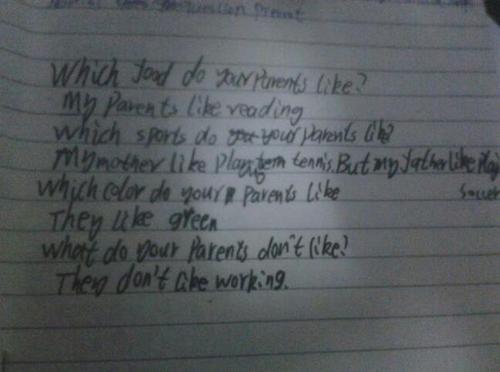 Which food do your Parents like?
My Parents like reading
Which sports do your parents like?
My mother like Play tennis. But my father like Play
soccer
Which color do your Parents like
They like green
What do your Parents don't like?
They don't like working.